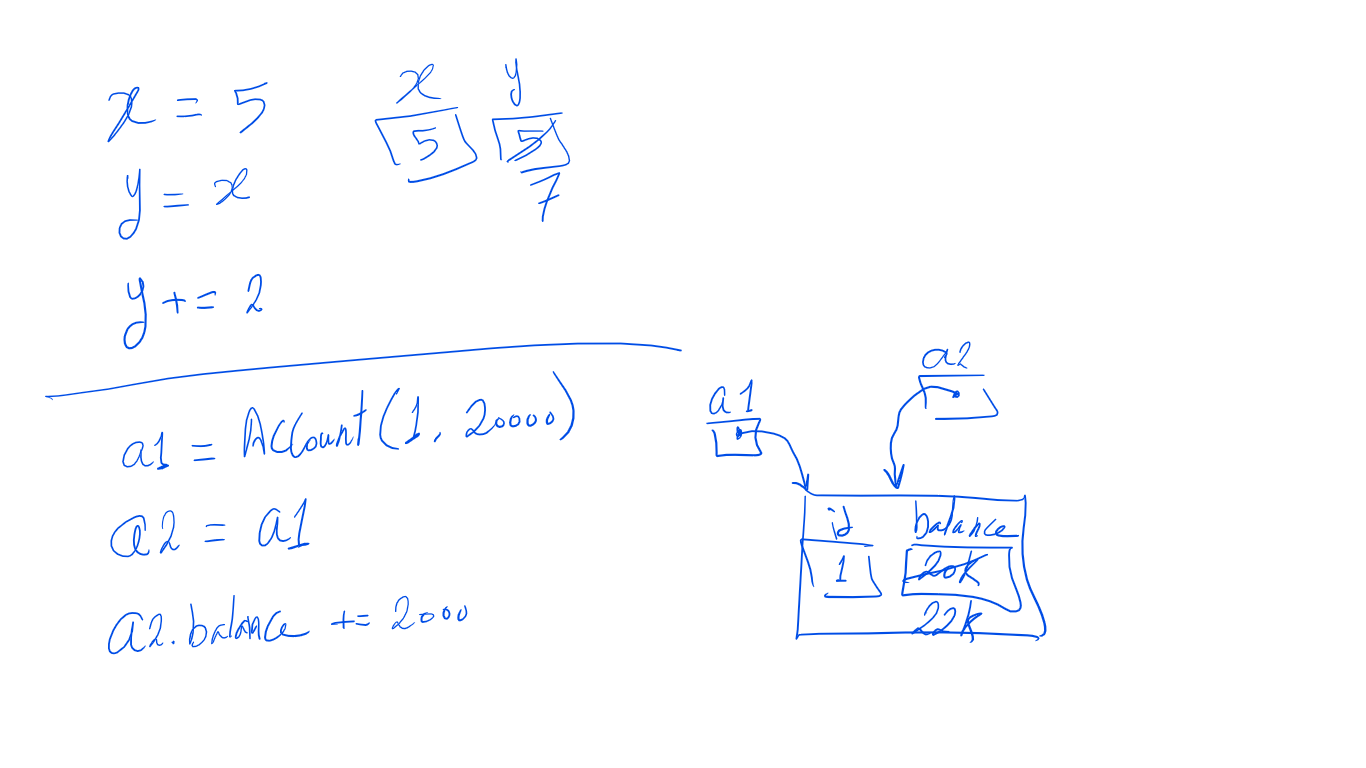 x = 5
y = x
y += 2
x y
5 5
7
a1 = Account(1, 20000)
a2 = a1
a2.balance += 2000
a1
a2
id balance
1 20K
22K